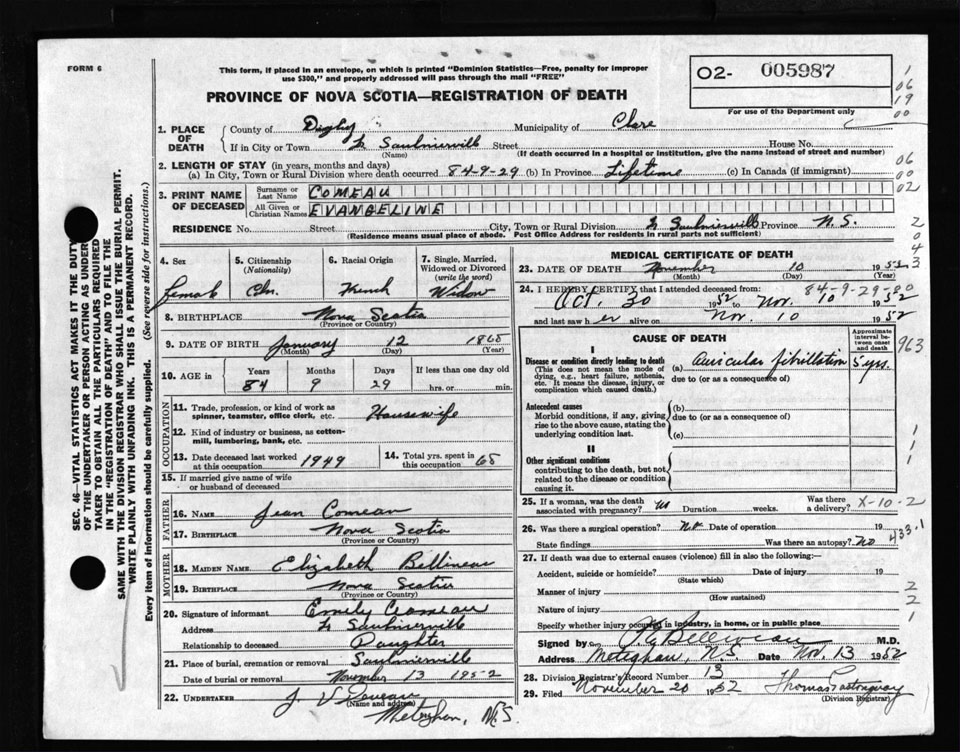 FORM 6
This form, if placed in an envelope, on which is printed "Dominion Statistics—Free, penalty for improper
use $300," and properly addressed will pass through the mail "FREE"
02- 005987
For use of the Department only
PROVINCE OF NOVA SCOTIA—REGISTRATION OF DEATH
1. PLACE OF DEATH
County of Digby Municipality of Clare
If in City or Town L. Saulnierville Street House No.
(Name) (If death occurred in a hospital or institution, give the name instead of street and number)
2. LENGTH OF STAY (in years, months and days)
(a) In City, Town or Rural Division where death occurred 84-9-29 (b) In Province Lifetime (c) In Canada (if immigrant)
3. PRINT NAME OF DECEASED
Surname or Last Name COMEAU
All Given or Christian Names EVANGELINE
RESIDENCE No. Street City, Town or Rural Division L. Saulnierville Province N.S.
(Residence means usual place of abode. Post Office Address for residents in rural parts not sufficient)
4. Sex
female
5. Citizenship
(Nationality)
6. Racial Origin
French
7. Single, Married, Widowed or Divorced
(write the word)
Widow
8. BIRTHPLACE Nova Scotia
(Province or Country)
9. DATE OF BIRTH January 12
(Month) (Day) (Year)
10. AGE in
Years Months Days If less than one day old
84 9 29 hrs. or min.
OCCUPATION
11. Trade, profession, or kind of work as
spinner, teamster, office clerk, etc. Housewife
12. Kind of industry or business, as cotten-
mill, lumbering, bank, etc.
13. Date deceased last worked
at this occupation 1949
14. Total yrs. spent in
this occupation 65
15. If married give name of wife
or husband of deceased
FATHER
16. NAME Jean Comeau
17. BIRTHPLACE Nova Scotia
(Province or Country)
MOTHER
18. MAIDEN NAME Elizabeth Belliveau
19. BIRTHPLACE Nova Scotia
(Province or Country)
20. Signature of informant Emily Comeau
Address L. Saulnierville
Relationship to deceased Daughter
21. Place of burial, cremation or removal Saulnierville
Date of burial or removal November 13 1952
22. UNDERTAKER J. V.
(Name and address)
Meteghan, N.S.
MEDICAL CERTIFICATE OF DEATH
23. DATE OF DEATH November 10 1952
(Month) (Day)
84-9-29-80
24. I HEREBY CERTIFY that I attended deceased from:
Oct. 30 1952 to Nov. 10 1952
and last saw her alive on Nov. 10 1952
CAUSE OF DEATH
Approximate interval between onset and death
I
Disease or condition directly leading to death
(This does not mean the mode of
dying, e.g., heart failure, asthenia,
etc. It means the disease, injury, or
complication which caused death.)
(a) Auricular fibrillation 5 yrs.
due to (or as a consequence of)
Antecedent causes
Morbid conditions, if any, giving
rise to the above cause, stating the
underlying condition last.
(b)
due to (or as a consequence of)
(c)
II
Other significant conditions
contributing to the death, but not
related to the disease or condition
causing it.
25. If a woman, was the death
associated with pregnancy? no Duration weeks. Was there a delivery? X-10-2
26. Was there a surgical operation? No Date of operation 19
State findings Was there an autopsy? No
433.1
27. If death was due to external causes (violence) fill in also the following:—
Accident, suicide or homicide? Date of injury 19
(State which)
Manner of injury
(How sustained)
Nature of injury
Specify whether injury occurred in industry, in home, or in public place
Signed by Belliveau M.D.
Address Meteghan, N.S. Date Nov. 13 1952
28. Division Registrar's Record Number 13
29. Filed November 20 1952 Thomas
(Division Registrar)
SEC. 46—VITAL STATISTICS ACT MAKES IT THE DUTY
OF THE UNDERTAKER OR PERSON ACTING AS UNDER-
TAKER TO OBTAIN ALL THE PARTICULARS REQUIRED
IN THE "REGISTRATION OF DEATH" AND TO FILE THE
SAME WITH THE DIVISION REGISTRAR WHO SHALL ISSUE THE BURIAL PERMIT.
WRITE PLAINLY WITH UNFADING INK. THIS IS A PERMANENT RECORD.
Every item of information should be carefully supplied. (See reverse side for instructions.)
1
06
19
00
06
00
02
2
0
4
3
963
1
1
1
2
2
1